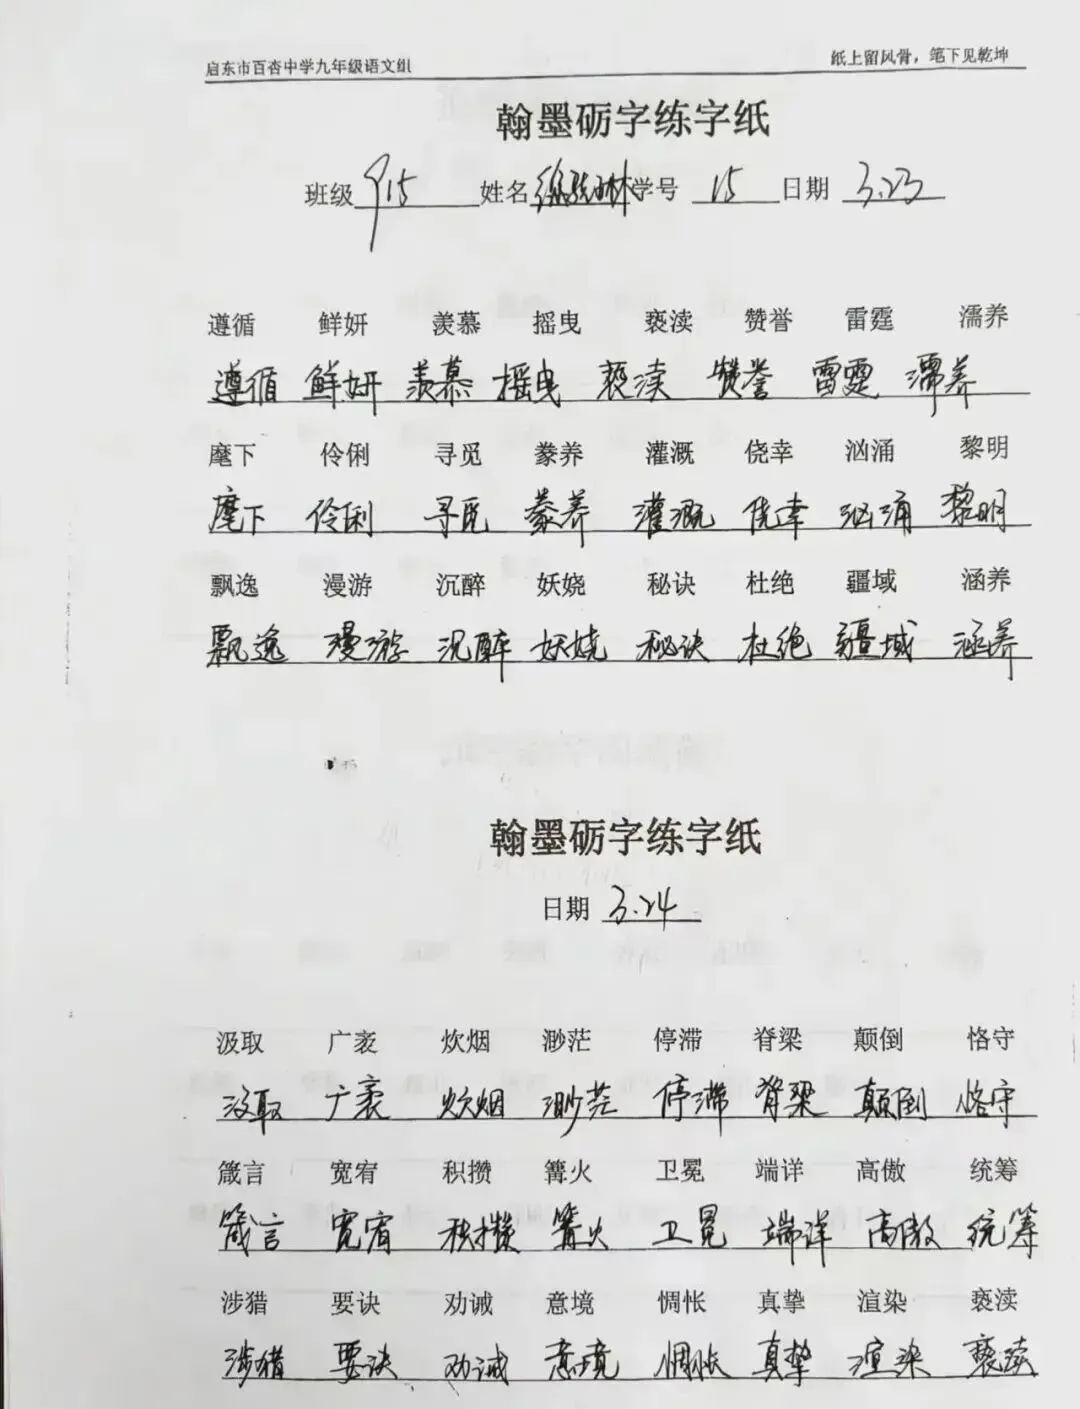 启东市百杏中学九年级语文组 纸上留风骨，笔下见乾坤
翰墨砺字练字纸
班级 915 姓名 学号 15 日期 3.23
遵循 鲜妍 羡慕 摇曳 亵渎 赞誉 雷霆 濡养
遵循 鲜妍 羡慕 摇曳 亵渎 赞誉 雷霆 濡养
麾下 伶俐 寻觅 豢养 灌溉 侥幸 汹涌 黎明
麾下 伶俐 寻觅 豢养 灌溉 侥幸 汹涌 黎明
飘逸 漫游 沉醉 妖娆 秘诀 杜绝 疆域 涵养
飘逸 漫游 沉醉 妖娆 秘诀 杜绝 疆域 涵养
翰墨砺字练字纸
日期 3.24
汲取 广袤 炊烟 渺茫 停滞 脊梁 颠倒 恪守
汲取 广袤 炊烟 渺茫 停滞 脊梁 颠倒 恪守
箴言 宽宥 积攒 篝火 卫冕 端详 高傲 统筹
箴言 宽宥 积攒 篝火 卫冕 端详 高傲 统筹
涉猎 要诀 劝诫 意境 惆怅 真挚 渲染 亵渎
涉猎 要诀 劝诫 意境 惆怅 真挚 渲染 亵渎